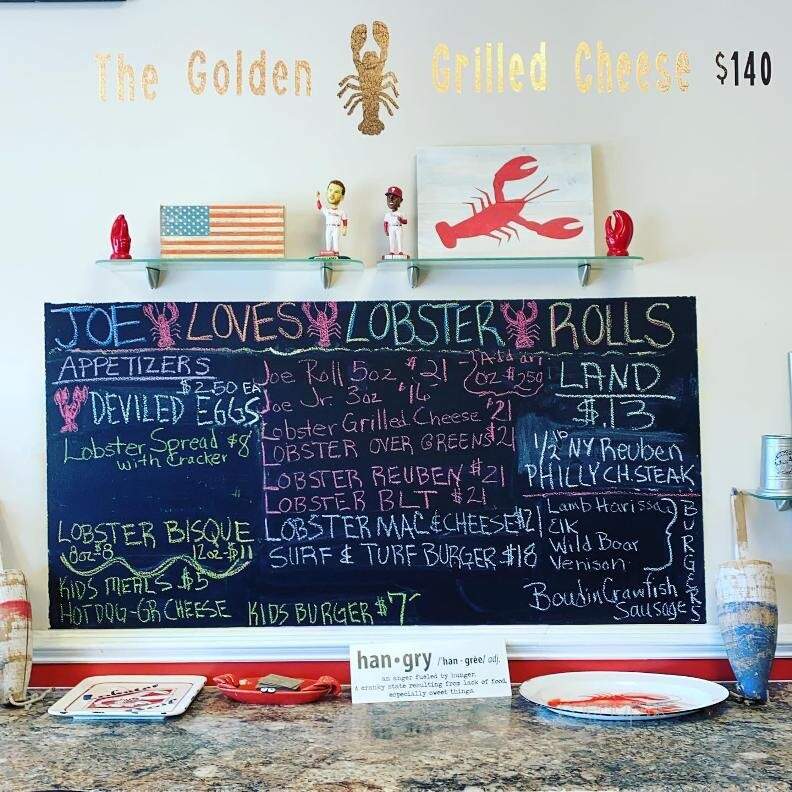 The Golden Grilled Cheese $140
JOE LOVES LOBSTER ROLLS
APPETIZERS
$2.50 EA
DEVILED EGGS
Lobster Spread $8
with Cracker
LOBSTER BISQUE
8oz $8 12oz-$11
KIDS MEALS $5
HOTDOG-GR CHEESE
KIDS BURGER $7
Joe Roll 5oz $21
Add an
OZ $2.50
Joe Jr. 3oz $16
Lobster Grilled Cheese $21
LOBSTER OVER GREENS $21
LOBSTER REUBEN $21
LOBSTER BLT $21
LOBSTER MAC & CHEESE $21
SURF & TURF BURGER $18
LAND
$.13
1/2 lb NY Reuben
PHILLY CH. STEAK
Lamb Harissa
Elk
Wild Boar
Venison
BURGERS
Boudin Crawfish
Sausage
han•gry /han-gree/ adj.
an anger fueled by hunger.
A cranky state resulting from lack of food,
especially sweet things.